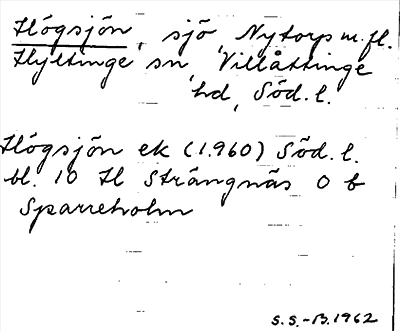 Högsjön, sjö, Nytorp m.fl.
Hyltinge sn, Villåttinge
hd, Söd.l.
Högsjön ek (1.960) Söd.l.
bl. 10 H Strängnäs O b
Sparreholm
S.S.-B.1962